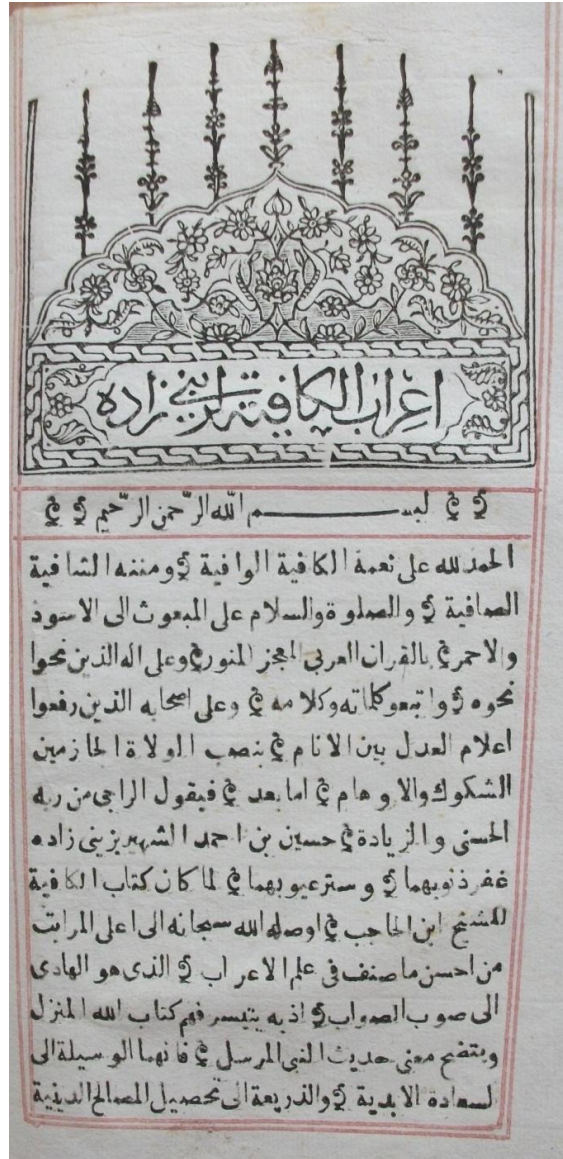 اعراب الكافية لزيني زاده
بسم الله الرّحمن الرّحيم
الحمد لله على نعمة الكافية الوافية ومننه الشافية
الصافية والصلوة والسلام على المبعوث الى الاسود
والاحمر بالقران العربى المعجز المنور وعلى اله الذين نحوا
نحوه واتبعو كلماته وكلامه وعلى اصحابه الذين رفعوا
اعلام العدل بين الانام بنصب الولاة الجازمين
الشكوك والاوهام اما بعد فيقول الراجى من ربه
الحسنى والزيادة حسين بن احمد الشهير بزينى زاده
غفر ذنوبهما وستر عيوبهما لما كان كتاب الكافية
للشيخ ابن الحاجب اوصله الله سبحانه الى اعلى المراتب
من احسن ما صنف فى علم الاعراب الذى هو الهادى
الى صوب الصواب اذ به يتيسر فهم كتاب الله المنزل
ويتضح معنى حديث النبى المرسل فانهما الوسيلة الى
لسعادة الابدية والذريعة الى تحصيل المصالح الدينية